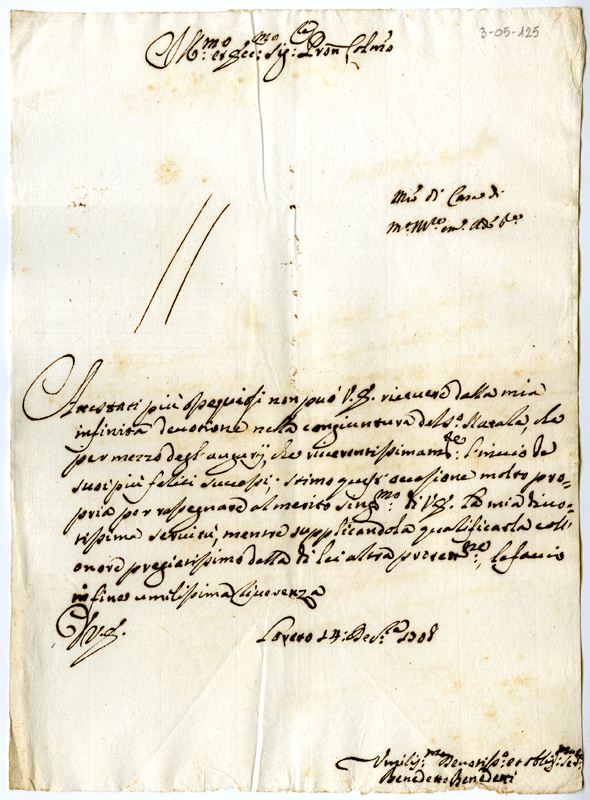 3-05-125
Ill:mo et Ecc:mo Sig: Pron Colmo
di Casa di
Attestati più ossequiosi non può V.E. ricevere dalla mia
infinita devotione nella congiuntura del S:o Natale, che
per mezzo degl'augurij, che riverentissimam:te l'invio de
suoi più felici successi; stimo quest'occasione molto pro=
pria per rassegnare al merito sing:mo di V.E. la mia divo=
tissima servitù, mentre supplicandola qualificarla coll'
onore pregiatissimo della di lei altra
in fine umilissima riverenza
Di V.E.
Loreto 14: Dec:re 1708
Umiliss:mo Devotiss:o et obblig:mo
Benedetto Benedetti